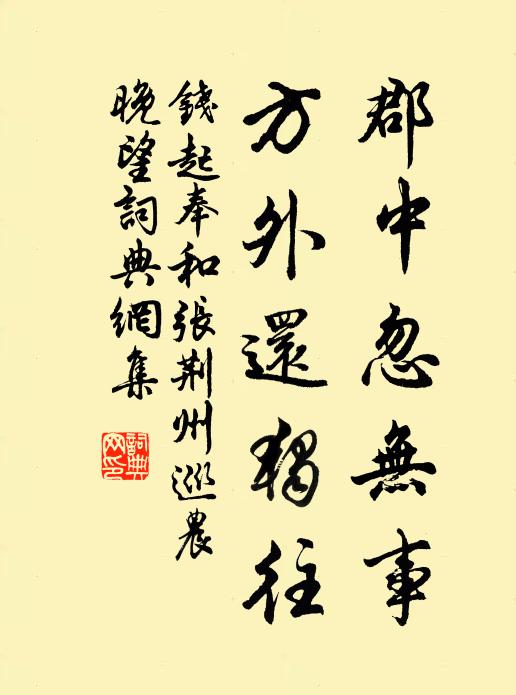 郡中忽無事
方外還獨往
錢起奉和張荆州巡農
晚望詞典網集
詞典
网印